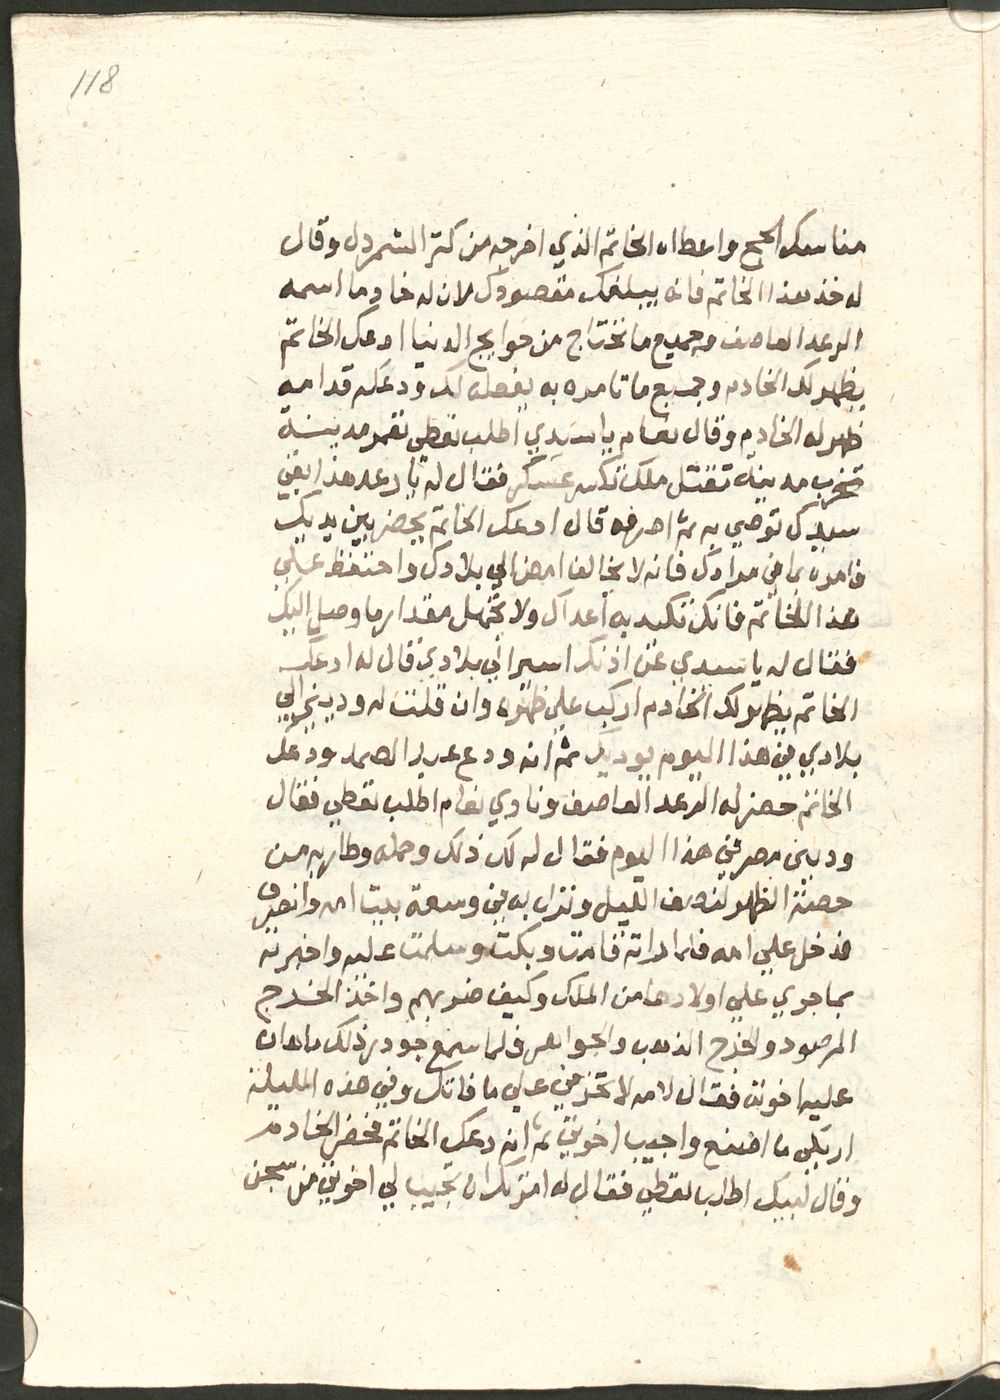 118
مناسك الحج واعطاه الخاتم الذي اخرجه من كنز الشمردل وقال
له خذ هذا الخاتم فانه يبلغك مقصودك لان له خادما اسمه
الرعد العاصف وجميع ما تحتاج من حوايج الدنيا ادعك الخاتم
يظهر لك الخادم وجميع ما تامره به يفعله لك ودعكه قدامه
ظهر له الخادم وقال نعام يا سيدي اطلب تعطي تعمر مدينة
تخرب مدينه تقتل ملك تكسر عسكر فقال له يا رعد هذا بقي
سيدك توصي به ثم اصرفه قال ادعك الخاتم يحضر بين يديك
فامره بما في مرادك فانه لا يخالفا امض الي بلادك واحتفظ علي
هذا الخاتم فانك تكيد به اعداك ولا تجهل مقدارها وصل اليك
فقال له يا سيدي عن اذنك اسير الي بلادي قال له ادعك
الخاتم يظهر لك الخادم اركب علي ظهره وان قلت له وديني الي
بلادي في هذا اليوم يوديك ثم انه ودع عبد الصمد ودعك
الخاتم حضر له الرعد العاصف ونادي نعام اطلب تعطي فقال
وديني مصر في هذا اليوم فقال له لك ذلك وحمله وطار به من
حصة الظهر لنصف الليل ونزل به في وسعة بيت امه وانصرف
فدخل علي امه فلما راته قامت وبكت وسلمت عليه واخبرته
بما جري علي اولادها من الملك وكيف ضربهم واخذ الخرج
المرصود والخرج الذهب والجواهر فلما سمع جودر ذلك ما هان
عليه اخوته فقال لامه لا تحزني علي ما فاتك وفي هذه الليلة
اريكي ما اصنع واجيب اخوتي ثم انه دعك الخاتم فحضر الخادم
وقال لبيك اطلب تعطي فقال له امرتك ان تجيب لي اخوتي من سجن